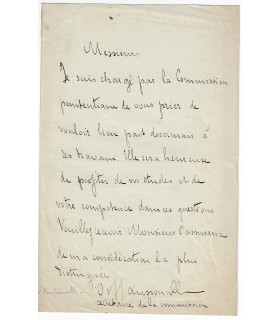 Messieurs
Je suis chargé par la Commission
pénitentiaire de vous prier de
vouloir bien part desormais à
ses travaux. Elle sera heureuse
de profiter de vos études et de
votre compétence dans ces questions.
Veuillez recevoir Monsieur l'assurance
de ma considération la plus
distinguée
O d'Haussonville
secrétaire de la commission